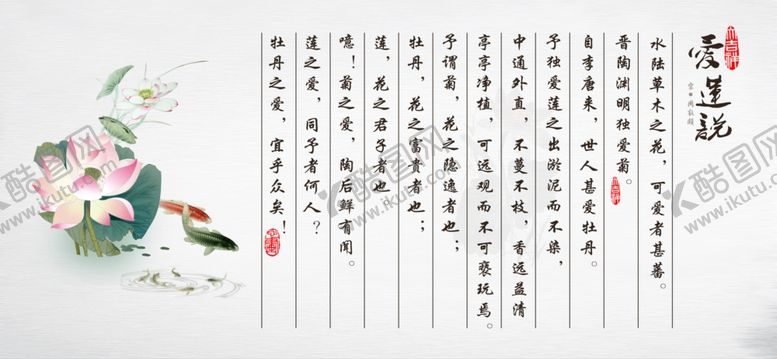 愛蓮説
宋·周敦頤
水陆草木之花，可爱者甚蕃。
晋陶渊明独爱菊。
自李唐来，世人甚爱牡丹。
予独爱莲之出淤泥而不染，
中通外直，不蔓不枝，香远益清
亭亭净植，可远观而不可亵玩焉。
予谓菊，花之隐逸者也；
牡丹，花之富贵者也；
莲，花之君子者也
噫！菊之爱，陶后鲜有闻。
莲之爱，同予者何人？
牡丹之爱，宜乎众矣！
酷图网
www.ikutu.com